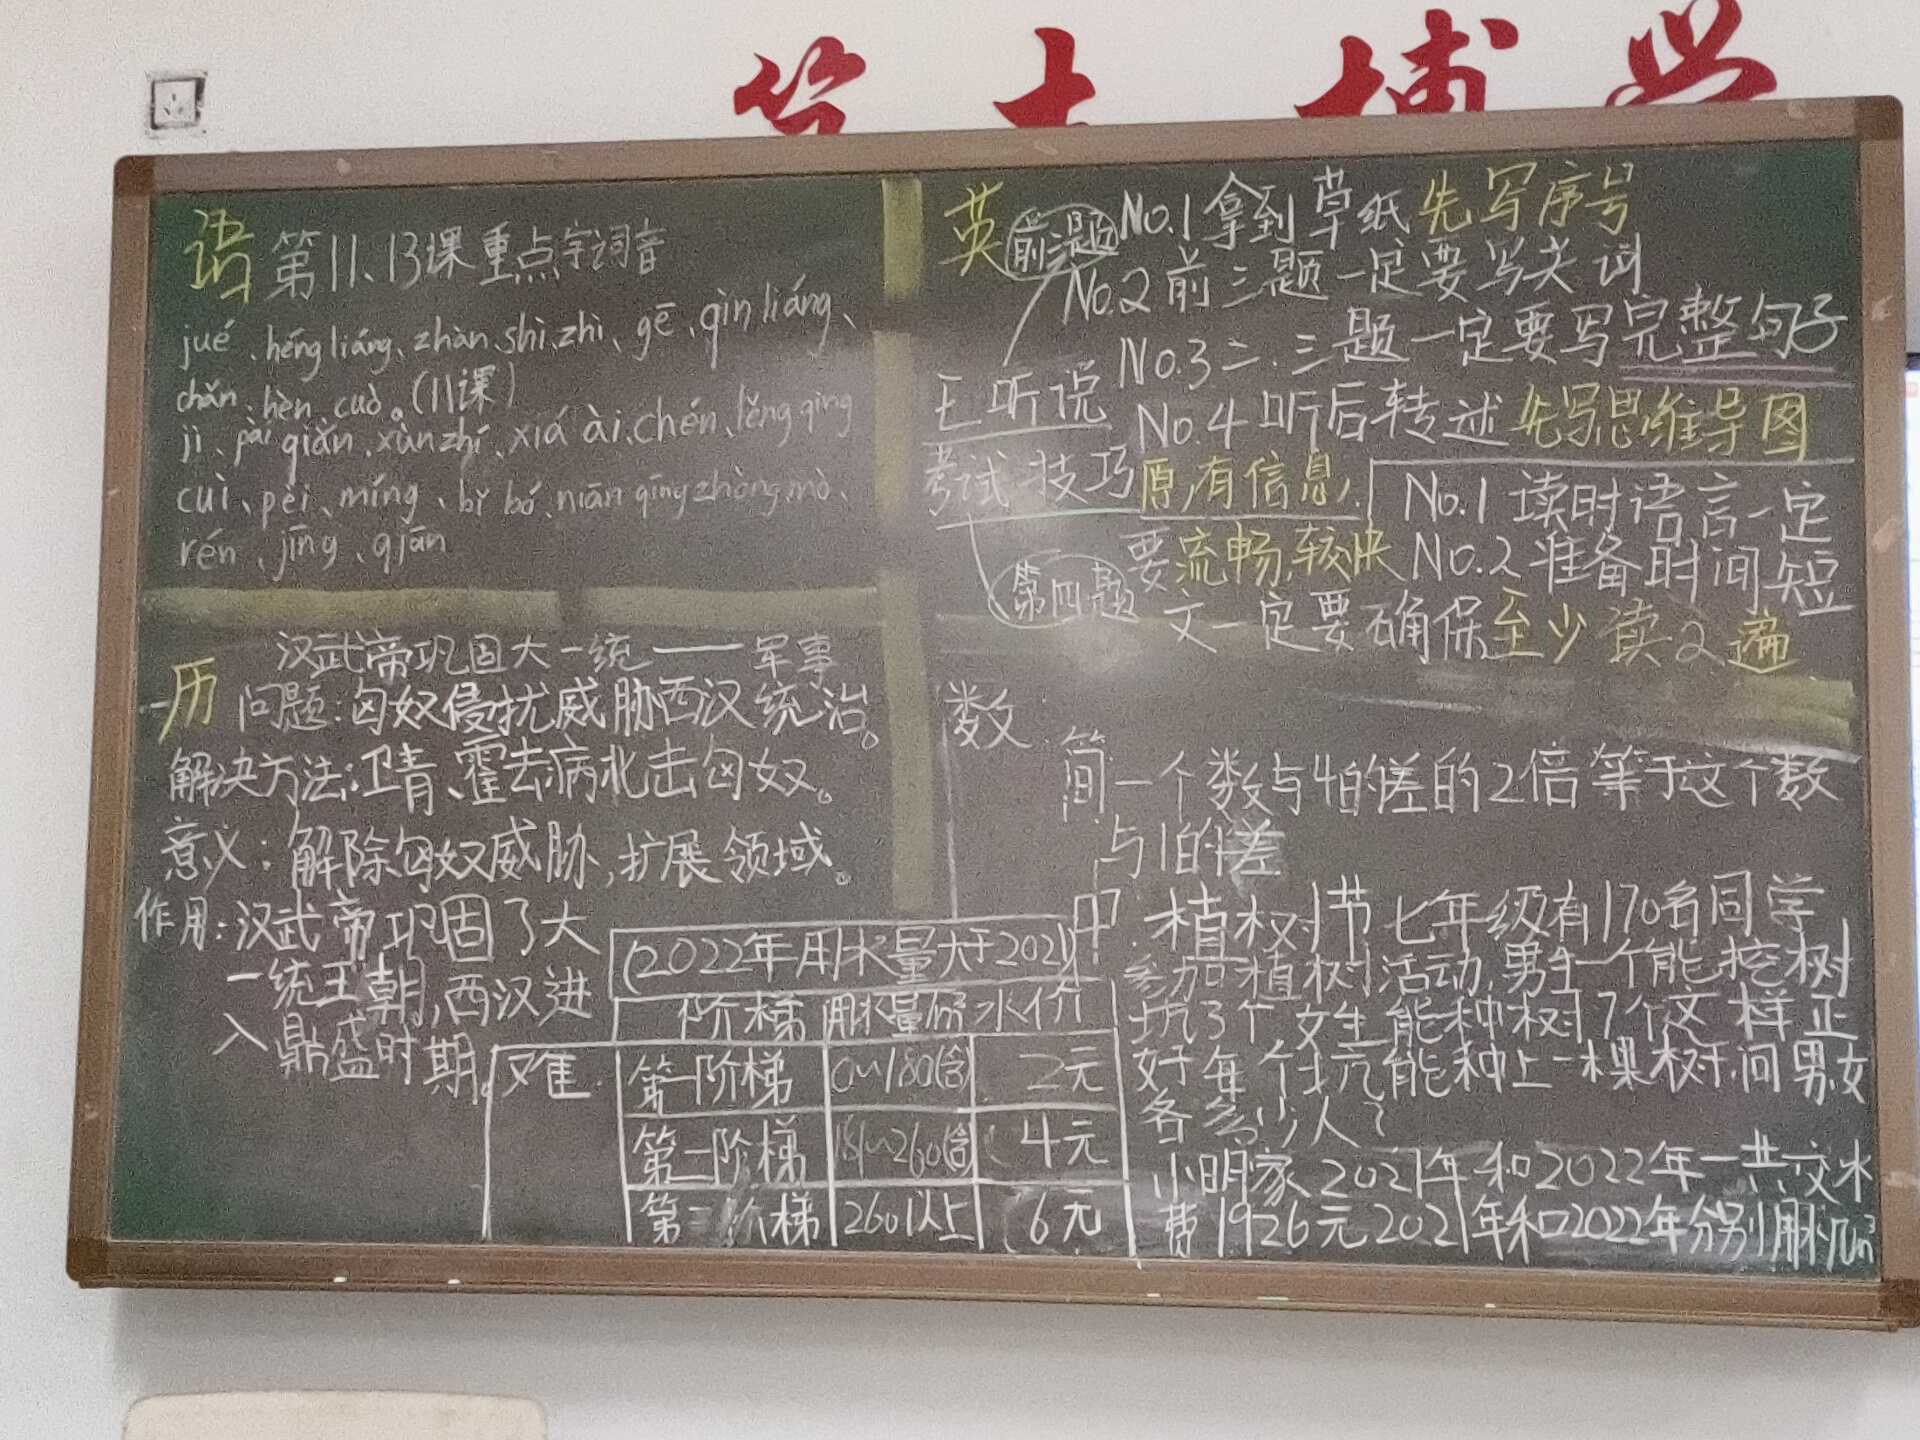 语 第11、13课重点字词音
jué、héng liáng、zhàn、shì、zhì、gē、qìn liáng、
chǎn、hèn、cuò。(11课)
jì、pài qiǎn、xùn zhí、xiá ài、chén、lěng qīng
cuì、pèi、míng、bǐ bó、niān qīng zhòng mò、
rén、jīng、qiān
英 前三题 No.1 拿到草纸先写序号
No.2 前三题一定要写关词
No.3 二.三题一定要写完整句子
E听说
考试技巧
No.4 听后转述先写思维导图
原有信息,
第四题
No.1 读时语言一定
要流畅,较快 No.2 准备时间短
文一定要确保至少读2遍
历 汉武帝巩固大一统——军事
问题:匈奴侵扰威胁西汉统治。
解决方法:卫青、霍去病北击匈奴。
意义:解除匈奴威胁,扩展领域。
作用:汉武帝巩固了大
一统王朝,西汉进
入鼎盛时期。
数
简 一个数与4的差的2倍等于这个数
与1的差
中 植树节七年级有170名同学
参加植树活动,男生一个能挖树
坑3个女生能种树7个这样正
好每个坑能种上一棵树,问男女
各多少人?
难
(2022年用水量大于2021)
阶梯 用水量/m³ 水价
第一阶梯 0~180(含) 2元
第二阶梯 181~260(含) 4元
第三阶梯 260以上 6元
小明家2021年和2022年一共交水
费1926元2021年和2022年分别用水几m³